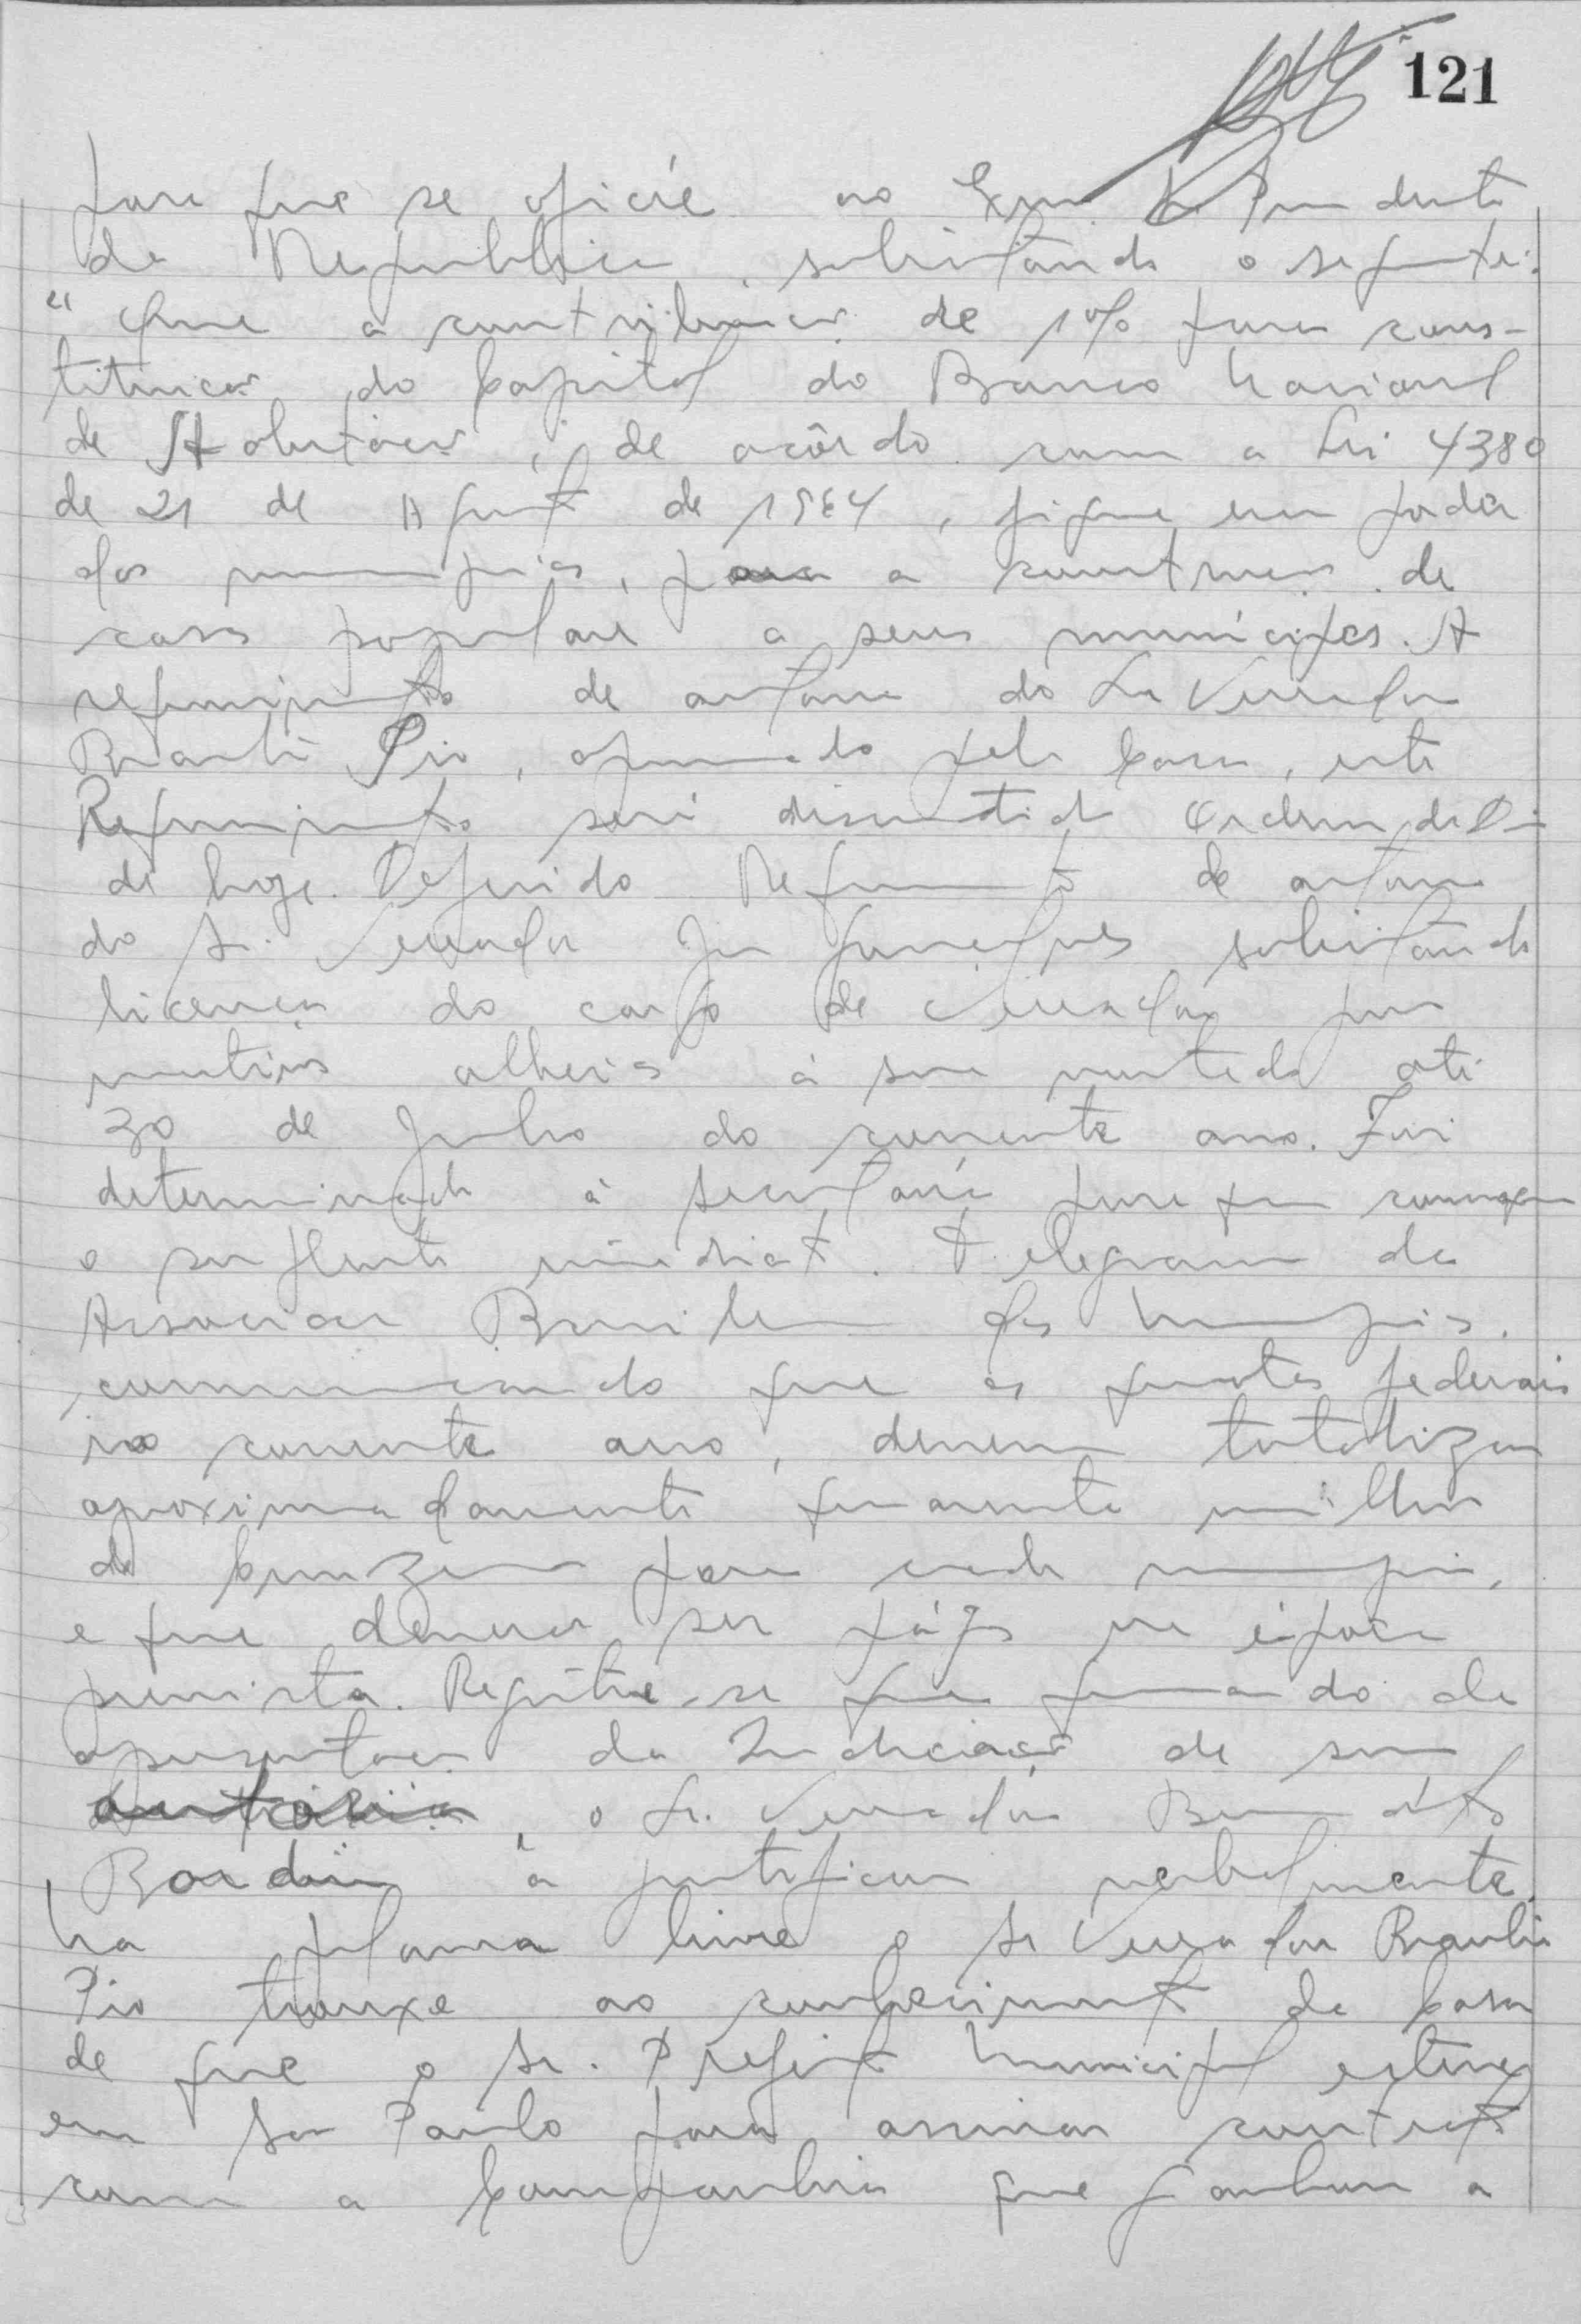 121
para que se oficie ao Exmo. Sr. Presidente
da Republica, solicitando o seguinte:
"Que a contribuicao de 1% para cons-
tituicao do Capital do Banco Nacional
de Habitacao, de acôrdo com a Lei 4380
de 21 de Agosto de 1964, fique em poder
dos municipios, para a construcao de
casas populares a seus municipes. A
requerimento de autoria do Sr Vereador
Braulio Pio, aprovado pela Casa, este
Requerimento será discutido Ordem do Dia
de hoje. Deferido Requerimento de autoria
do Sr. Vereador solicitando
licença do cargo de Vereador por
motivos alheios à sua vontade até
30 de Junho do corrente ano. Foi
determinado à Secretaria para que convoque
o suplente imediato. Telegrama da
Associacao Brasileira dos Municipios,
comunicando que as quotas federais
no corrente ano, deverão totalizar
aproximadamente quarenta milhões
de Cruzeiros para cada municipio,
e que deverao ser págos na época
prevista. Registre-se que quando da
apresentacao da Indicacao de sua
autoria, o Sr. Vereador Benedito
Bardin a justificou verbalmente.
Na palavra livre o Sr Vereador Braulio
Pio trouxe ao conhecimento da Casa
de que o Sr. Prefeito Municipal esteve
em Sao Paulo para assinar contrato
com a Companhia que ganhou a